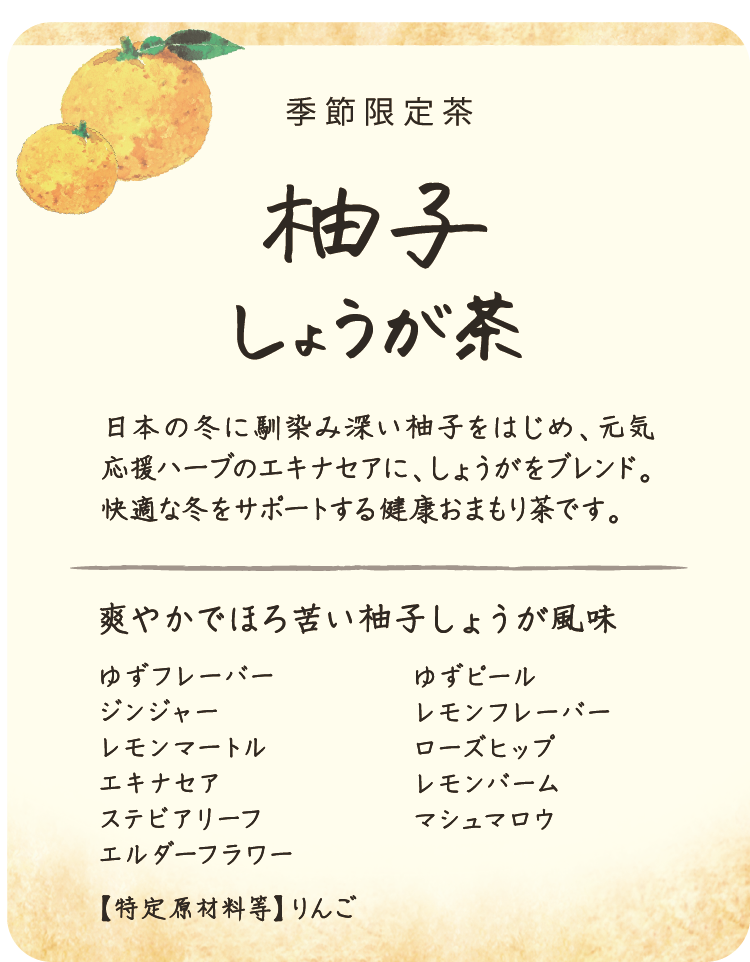 季節限定茶
柚子
しょうが茶
日本の冬に馴染み深い柚子をはじめ、元気
応援ハーブのエキナセアに、しょうがをブレンド。
快適な冬をサポートする健康おまもり茶です。
爽やかでほろ苦い柚子しょうが風味
ゆずフレーバー
ジンジャー
レモンマートル
エキナセア
ステビアリーフ
エルダーフラワー
ゆずピール
レモンフレーバー
ローズヒップ
レモンバーム
マシュマロウ
【特定原材料等】りんご